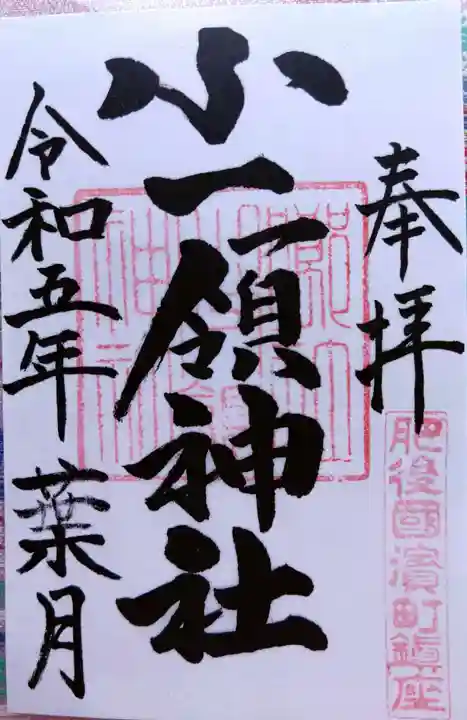 奉拝
肥後國濱町鎮座
小一領神社
令和五年 葉月